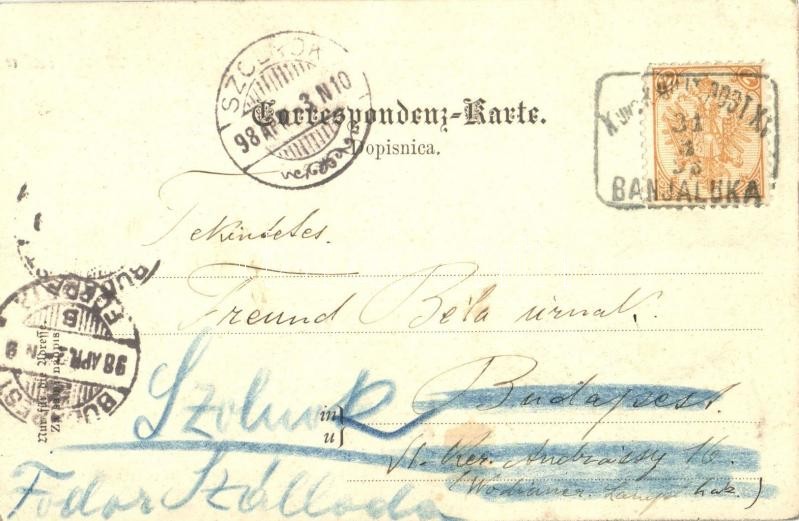 SZOLNOK
98 APR. 3 N10
Correspondenz-Karte.
Dopisnica.
BANJALUKA
Tekintetes
Freund Béla úrnak.
BUDAPEST
98 APR.
Nur für die Adresse
in
u
Budapest.
Szolnok
VI. Ker. Andrássy 16.
Fodor Szálloda